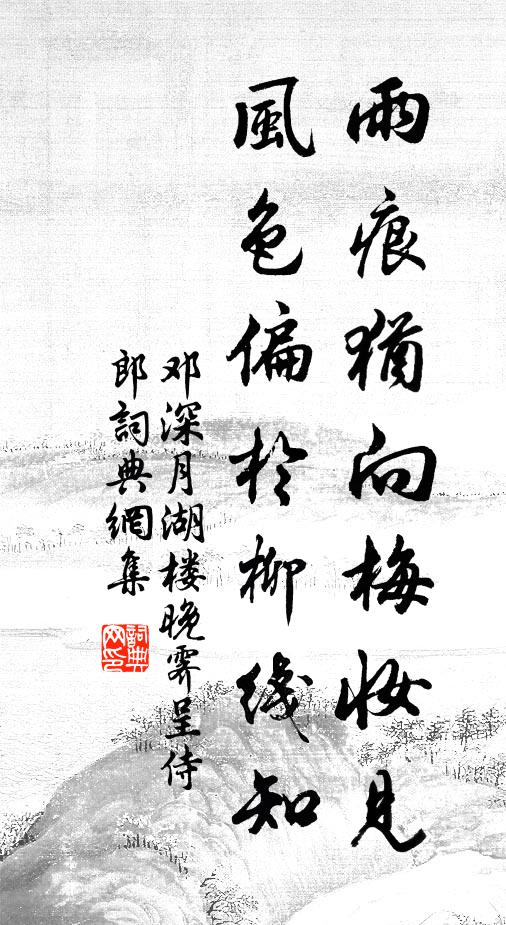 雨痕猶向梅妝見
風色偏於柳綫知
邓深月湖楼晚霽呈侍
郎詞典網集
詞典
网印